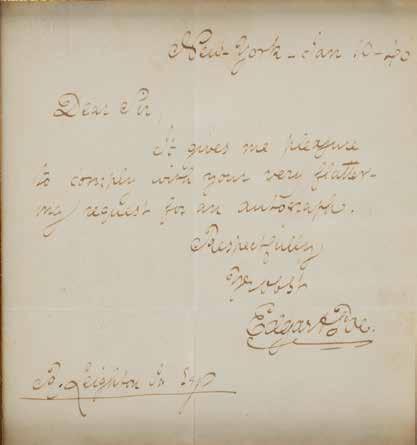 New-York - Jan 10 - 46
Dear Sir,
It gives me pleasure
to comply with your very flatter-
ing request for an autograph.
Respectfully
Yr obSt
Edgar A Poe.
R. Leighton Jr Esqr